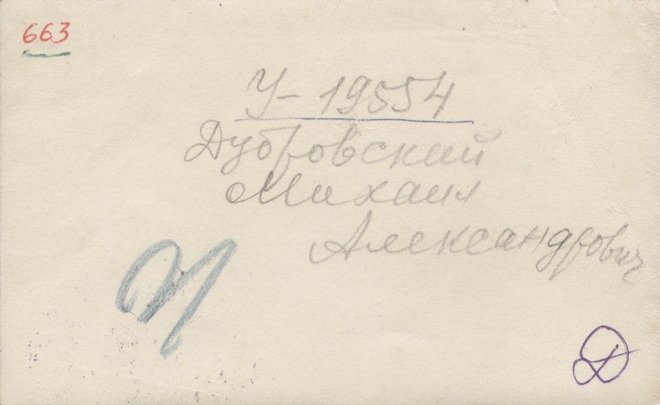 663
У-19554
Дубровский
Михаил
Александрович
Д